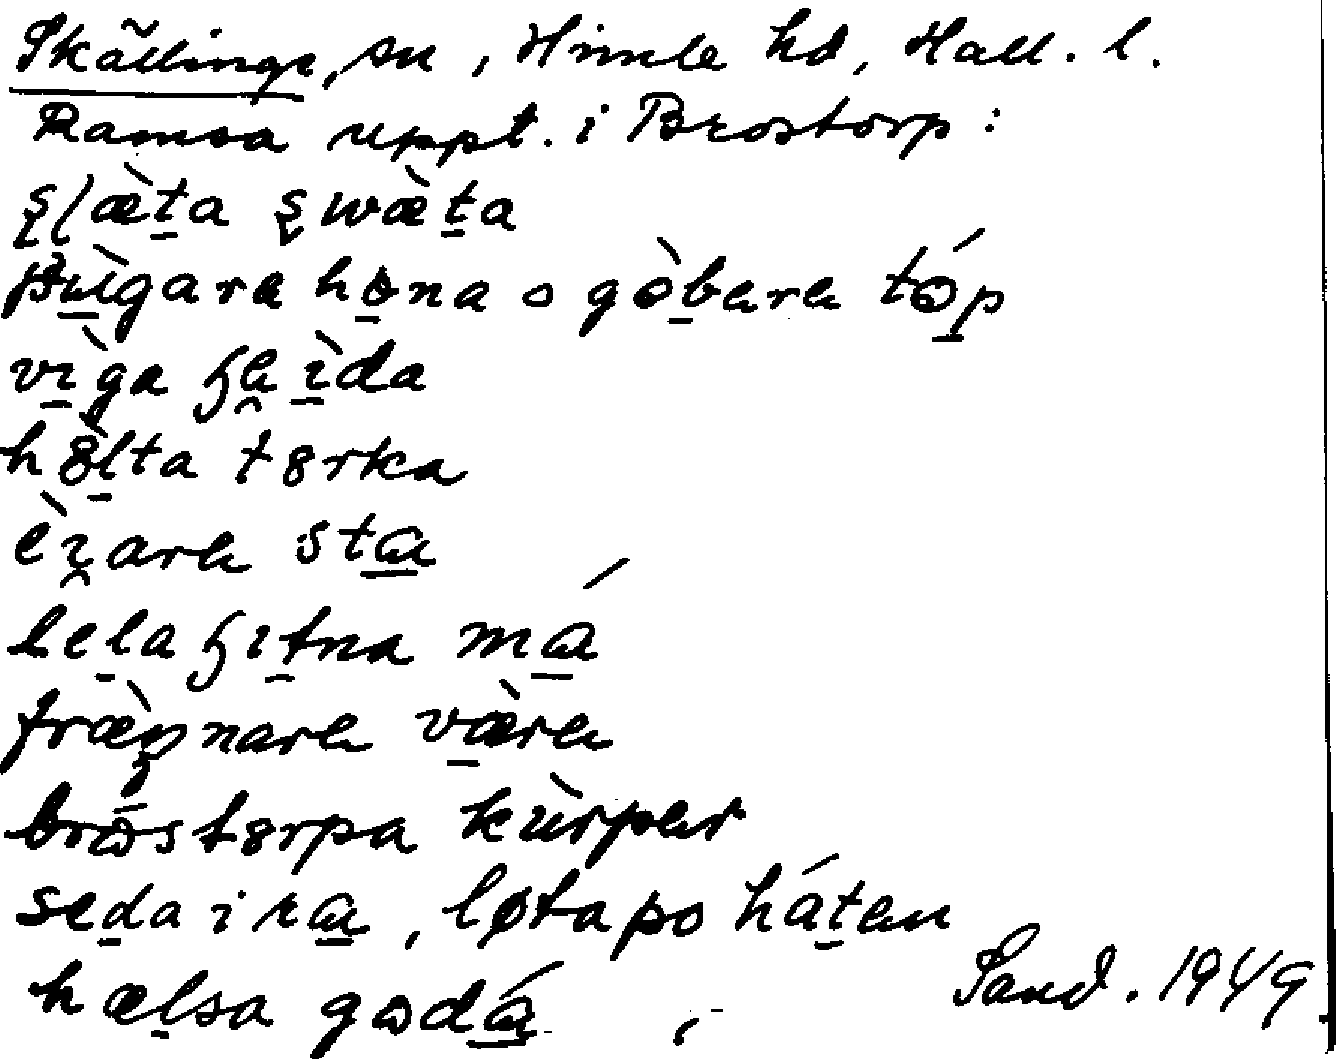 Skällinge, sn, Himle hd, Hall. l.
Ramsa uppt. i Brostorp:
ʂɭæ̀ta ʂwæ̀ta
pùgara hona o gòbara tóp
vɪ̀ga ɧa ɪ̀da
hòlta torka
èɪara sta
lela ɧɪtna má
fræ̀ŋnara væ̀ra
brostorpa kùrpar
seda i ra, løta po hátan
hælsa godá
Sand. 1949